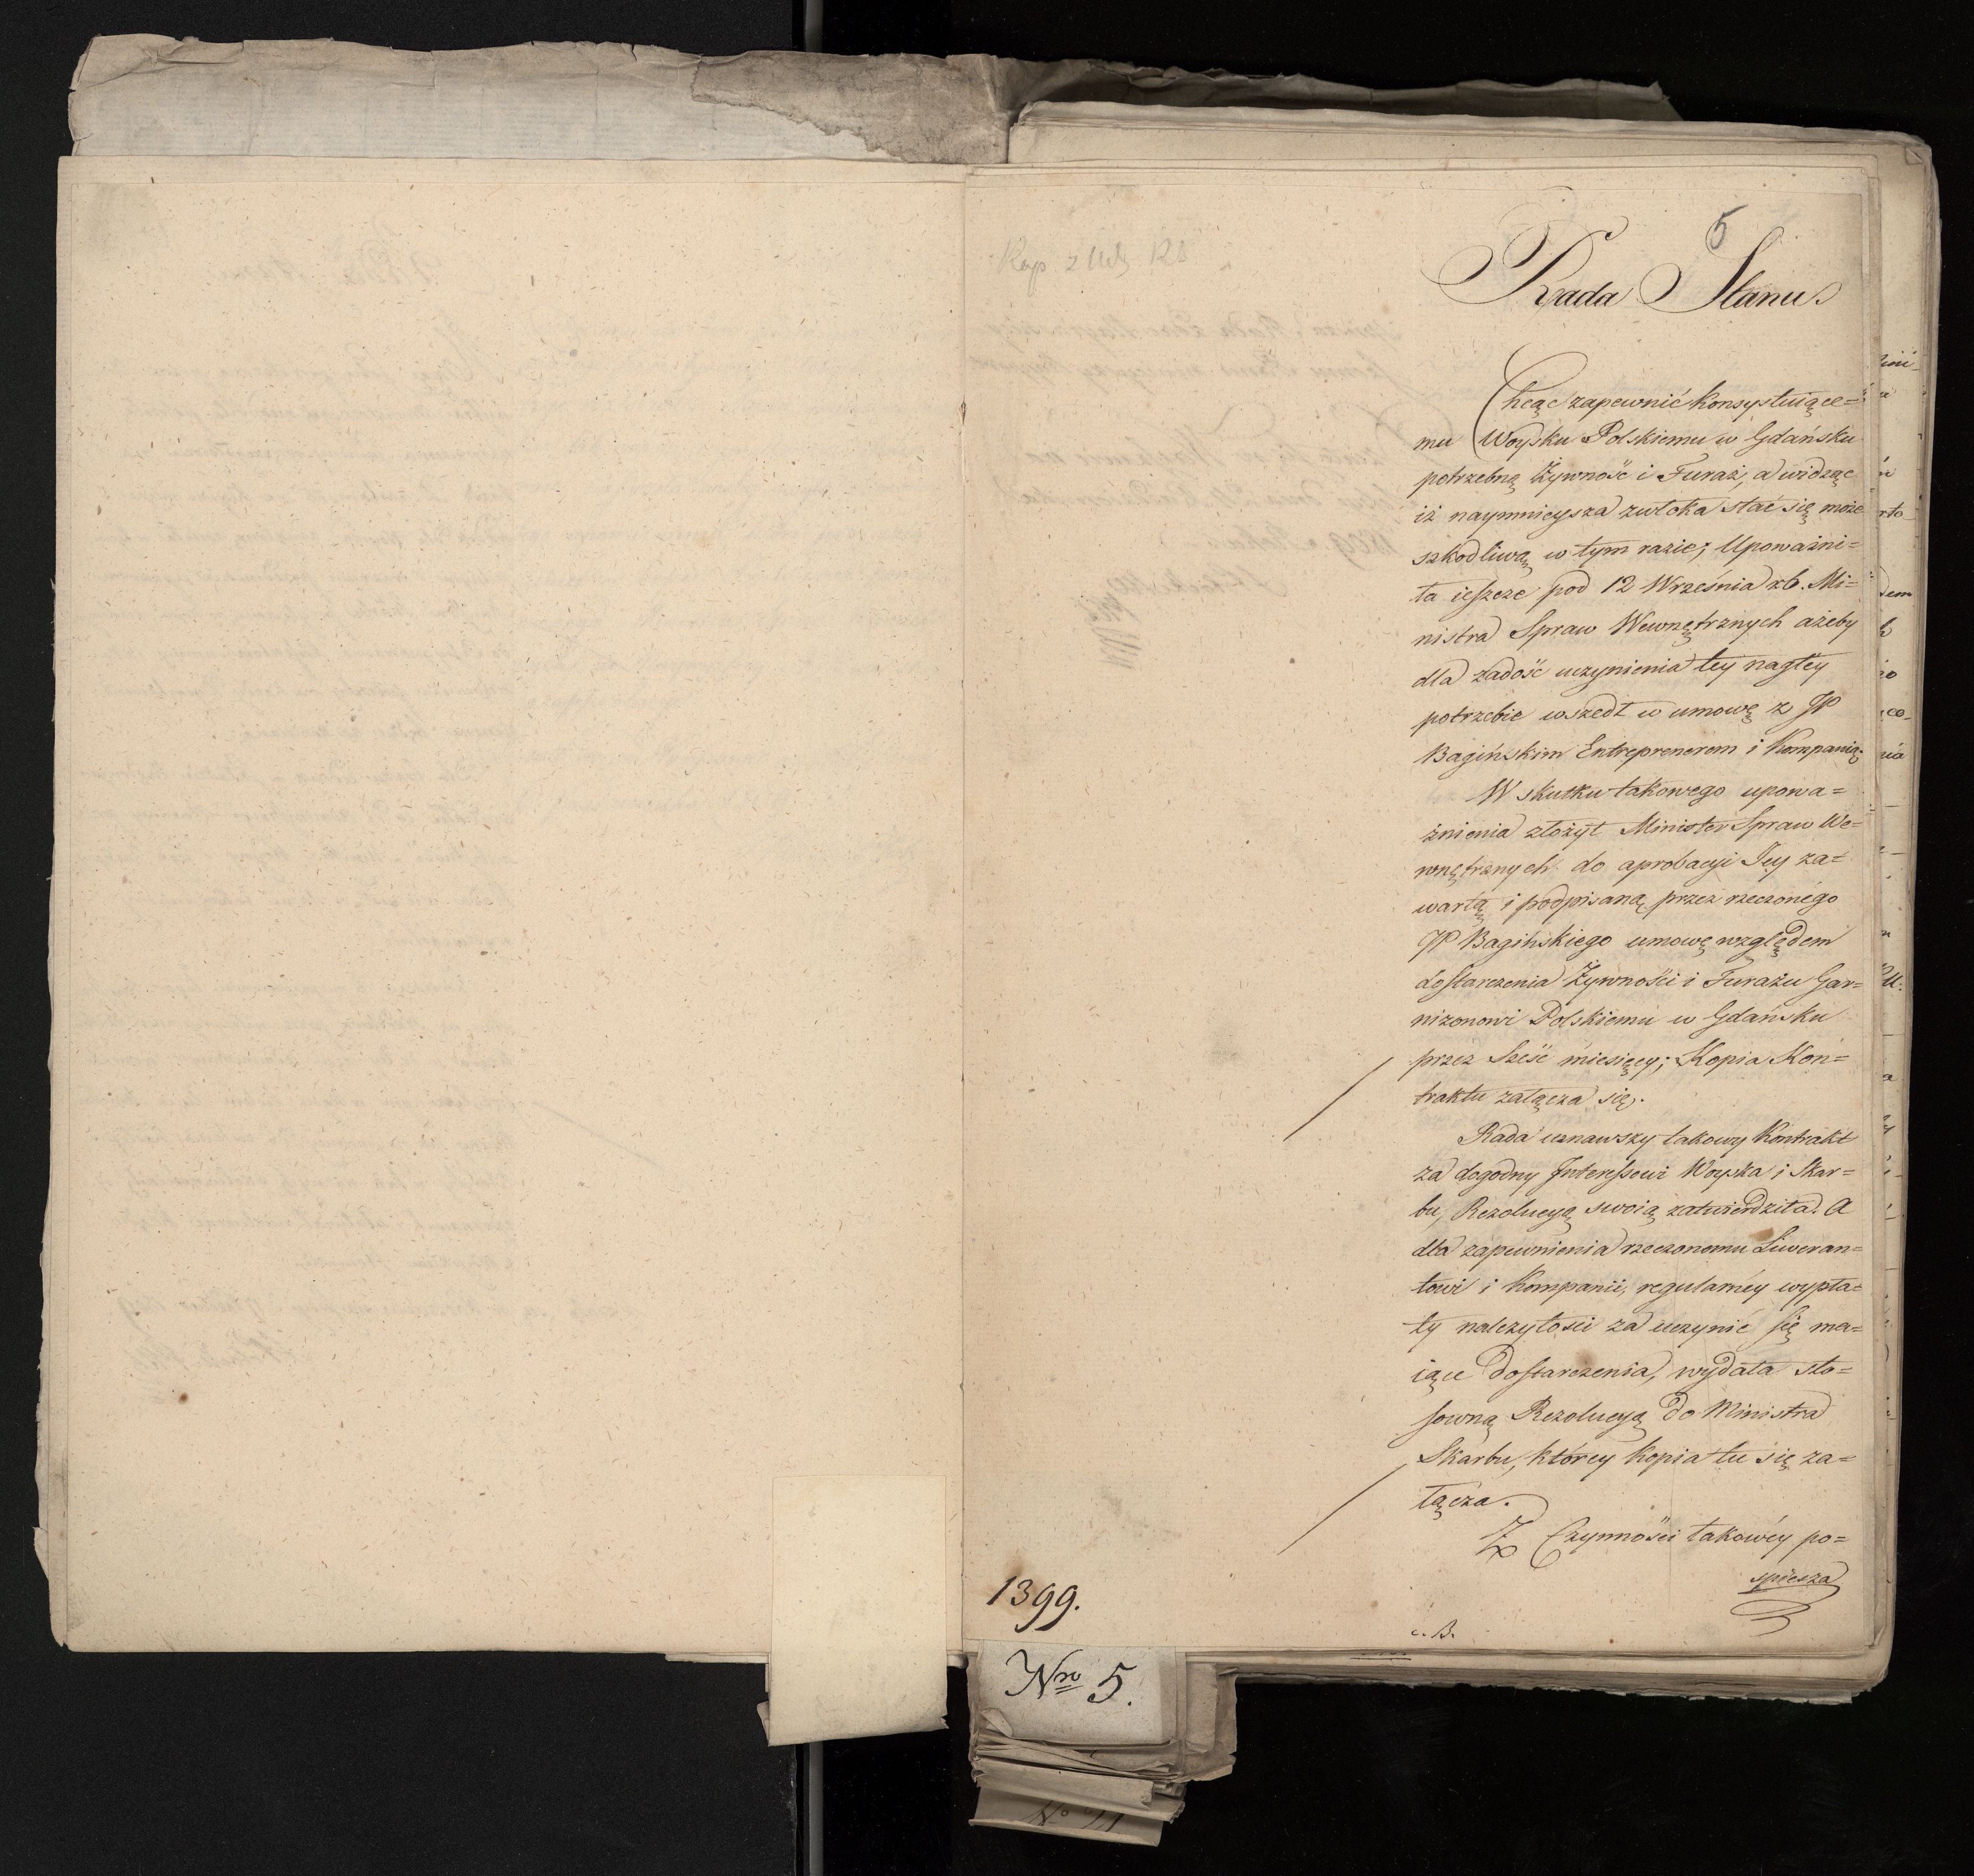 5
Rada Stanu
Chcąc zapewnić konsystuiące=
mu Woysku Polskiemu w Gdańsku
potrzebną Żywność i Furaż, a widząc
iż naymnieysza zwłoka stać się może
szkodliwą w tym razie; Upoważni=
ła ieszcze pod 12 Września rb. Mi=
nistra Spraw Wewnętrznych ażeby
dla zadość uczynienia tey nagłey
potrzebie wszedł w umowę z JP
Bagińskim Entreprenerem i Kompanią.
W skutku takowego upowa=
żnienia złożył Minister Spraw We=
wnętrznych do aprobacyi Jey za=
wartą i podpisaną przez rzeczonego
JP Bagińskiego umowę względem
dostarczenia Żywności i Furażu Gar=
nizonowi Polskiemu w Gdańsku
przez Sześć miesięcy; Kopia Kon=
traktu załącza się.
Rada uznawszy takowy Kontrakt
za dogodny Interessowi Woyska i Skar=
bu, Rezolucyą swoią zatwierdziła. A
dla zapewnienia rzeczonemu Liweran=
towi i Kompanii, regularnéy wypła=
ty należytości za uczynić się ma=
iące dostarczenia, wydała sto=
sowną Rezolucyą do Ministra
Skarbu, którey kopia tu się za=
łącza.
Z Czynności takowéy po=
spiesza
c. B.
1399.
Nro 5.
No 21